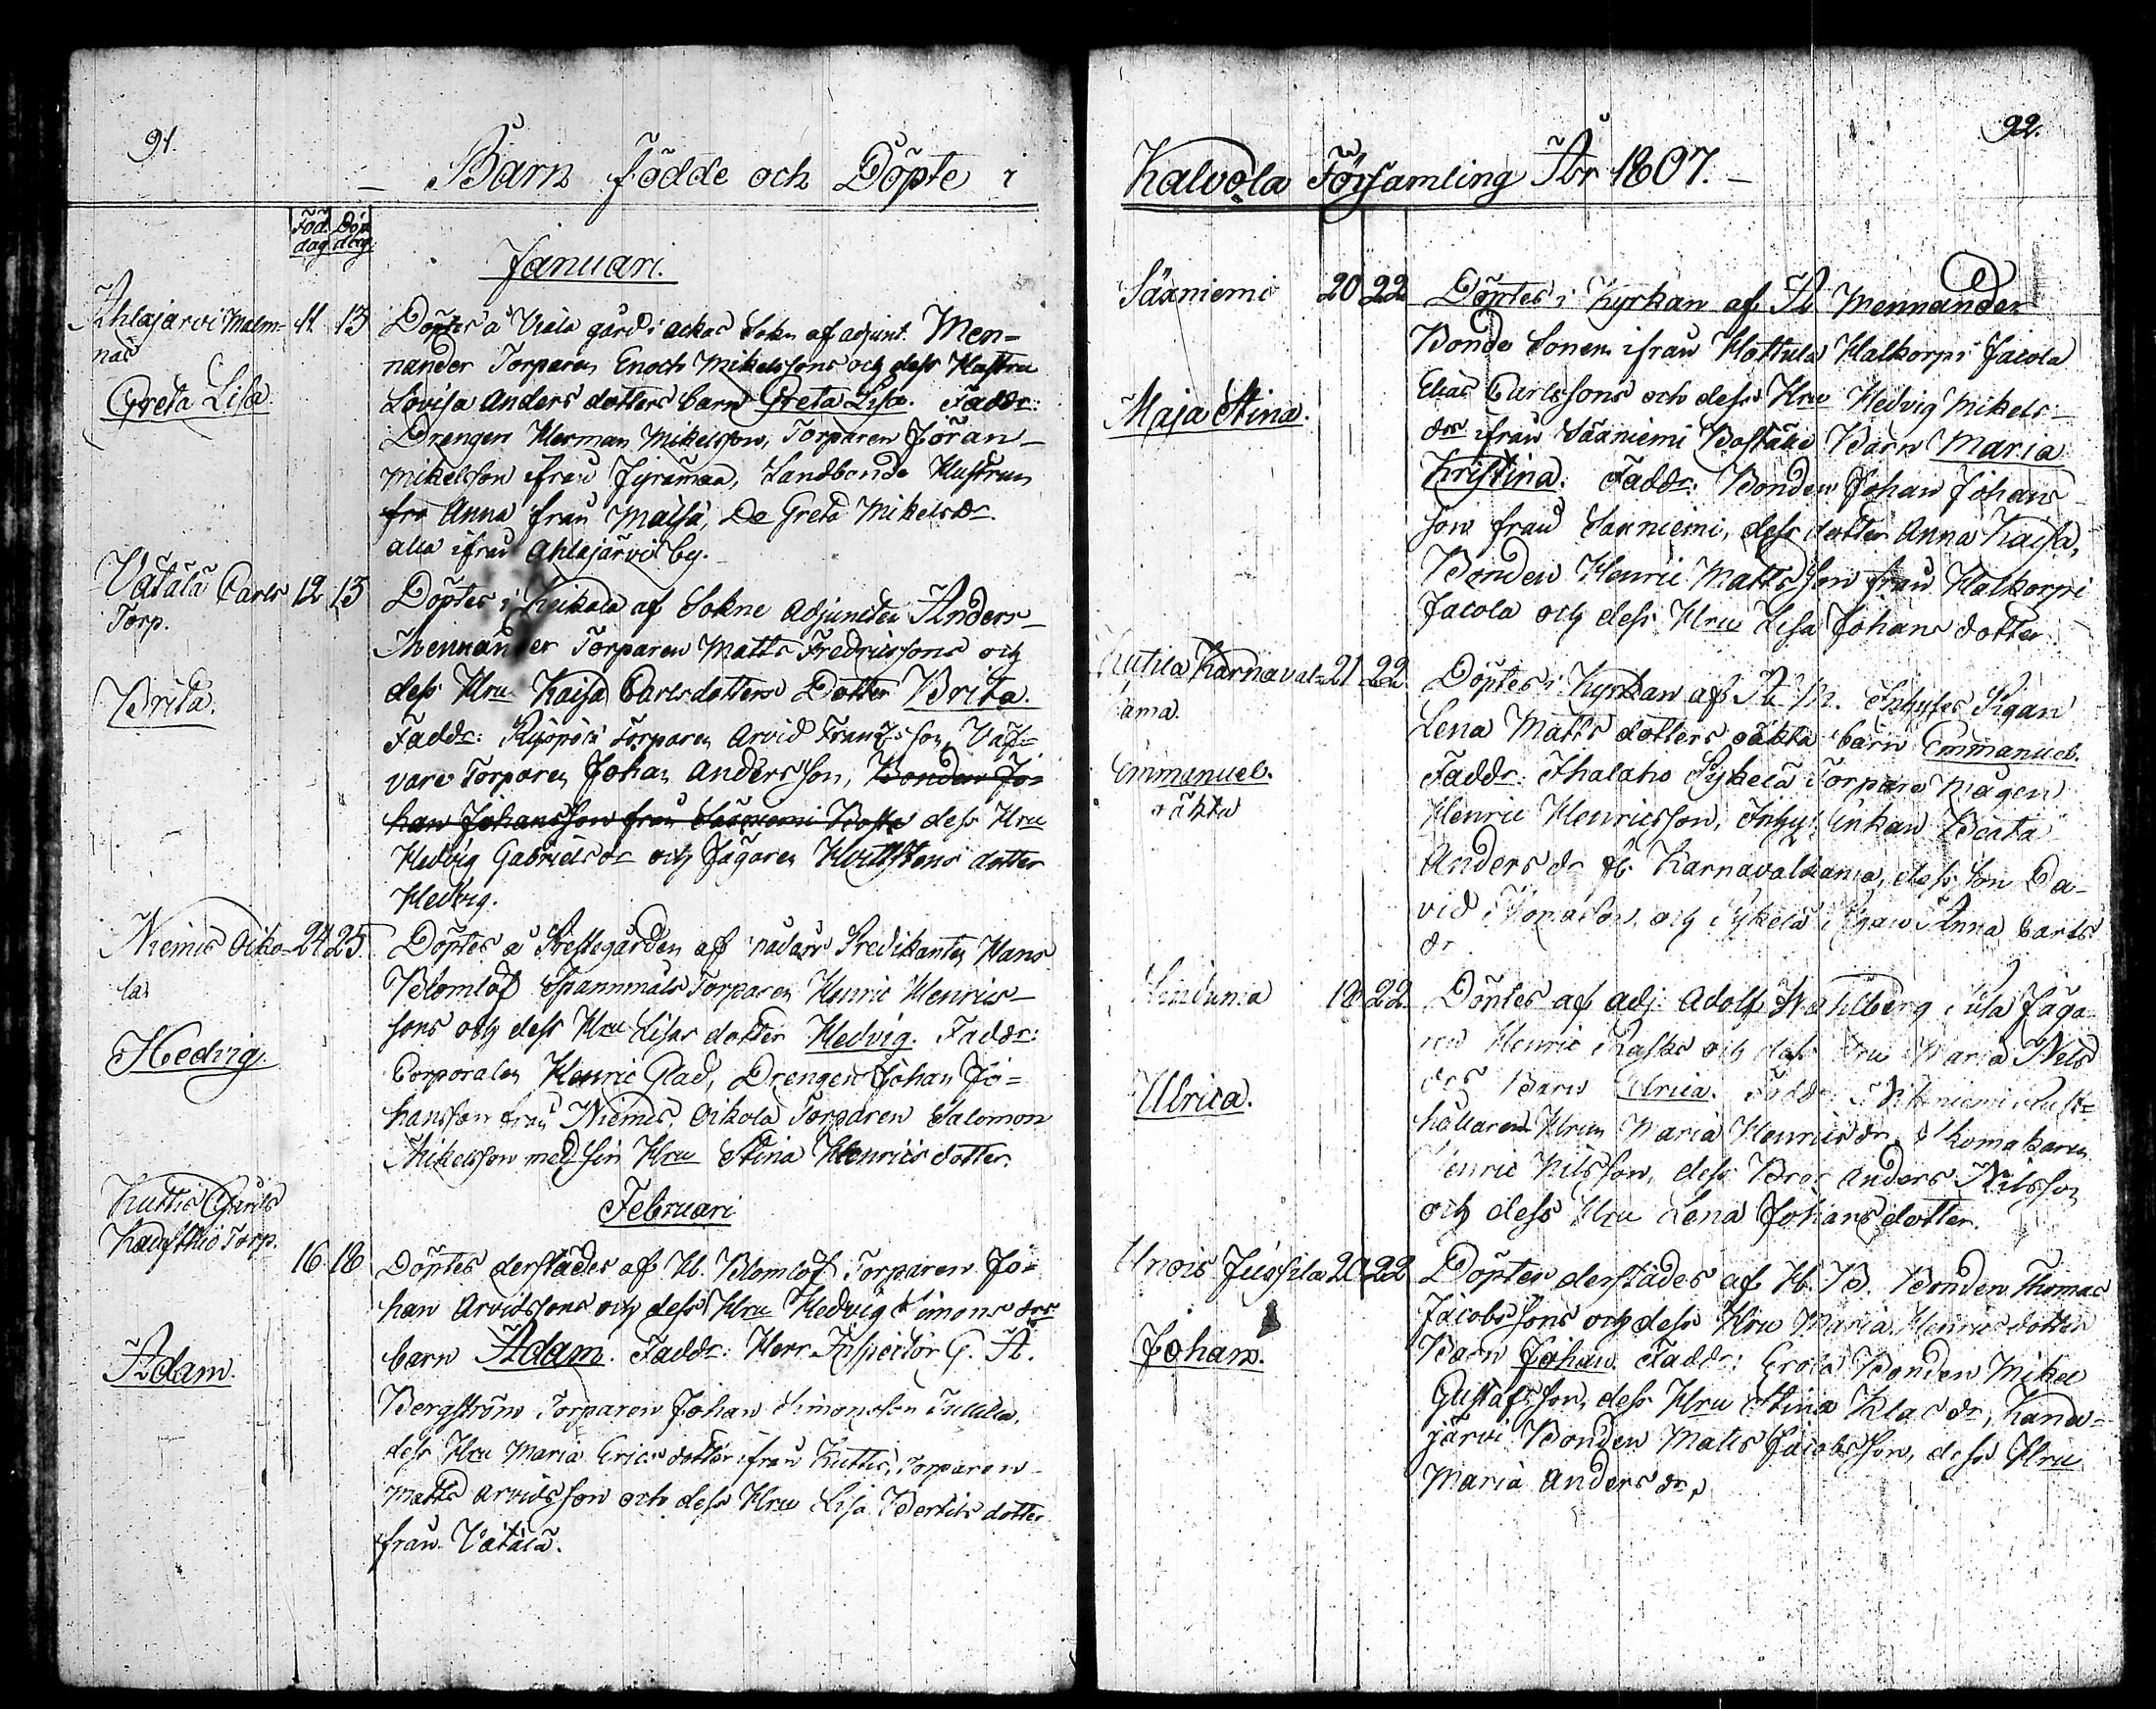 91.
Barn födde och Döpte i
Föd. Döp.
dag dag
Januari.
Ahlajärvi Malm-
näs
11 13
Greta Lisa
Döptes å Viala gård i Ackas Sokn af adjunt. Men-
nander Torparen Enoch Mikelssons och dess Hustru
Lovisa Anders dotters barn Greta Lisa. Faddr:
Drengen Herman Mikelsson, Torparen Jöran
Mikelsson ifrån Jyrämaa, Landbonde Hustrun
fro Anna från Maisa, De Greta Mikelsdr.
alla ifrån Ahlajärvi by.
Vätälä Carls
Torp.
12 13
Brita.
Döptes i af Sokne Adjuncten Anders
Mennander Torparen Matts Fredricssons och
dess Hru Kaisa Carlsdotters Dotter Brita.
Faddr: Torparen Arvid Frantsson,
vare Torparen Johan Andersson, Bonden Jo-
han Johansson från Sääxniemi Bostä dess Hru
Hedvig Gabrielsdr och Jägaren dotter
Hedvig.
Niemis Oiko-
la
24 25
Hedvig
Döptes å Prestegården af Predikanten Hans
Blomlöf Spannmåls Torparen Henric Henrics-
sons och dess Hru Lisas dotter Hedvig. Faddr:
Corporalen Henric Glad, Drengen Johan Jo-
hansson från Niemis, Oikola Torparen Salomon
Mikelsson med sin Hru Stina Henrics dotter.
Februari
Kuttis Carls
Torp.
16 18
Adam.
Döptes derstädes af H. Blomlöf Torparen Jo-
han Arvidssons och dess Hru Hedvig Simons drs
barn Adam. Faddr: Herr Inspector G. A.
Bergström Torparen Johan Simonsson
dess Hru Maria Erics dotter ifrån Kuttis, Torparen
Matts Arvidsson och dess Hru Lisa Bertils dotter
från Vätälä.
92.
Kalvola Församling År 1807.
Sääxniemi 20 22
Maja Stina.
Döptes i Kyrkan af A Mennander
Bonde Sonen ifrån Hattula Halkorpi Jacola
Elias Carlssons och dess Hru Hedvig Mikels-
drs ifrån Sääxniemi Boställe Barn Maria
Kristina. Faddr: Bonden Johan Johans
son från Sääxniemi, dess dotter Anna Kaisa,
Bonden Henric Mattsson från Halkorpi
Jacola och dess Hru Lisa Johans dotter
Kutila Karnaval-
kama.
21 22
Emmanuel.
oäkta
Döptes i Kyrkan af A. M. Inhyses Pigan
Lena Matts dotters oäkta barn Emmanuel.
Faddr: Ihalaho Sykelä Torpare Mågen
Henric Henricsson, Inhys: Enkan Beata
Anders dr fr. Karnavalkama, dess Son Da-
vid och Sykelä Pigan Anna Carls
dr
18 22
Ulrica.
Döptes af adj: Adolf Wahlberg Jäga-
ren Henric Rasks och dess Hru Maria Nils
drs Barn Ulrica. Faddr: Rust-
hållaren Hrun Maria Henricsdr, Skomakaren
Henric Nilsson, dess Bror Anders Nilsson
och dess Hru Lena Johansdotter.
Unois Jussila 20 22
Johan.
Döptes derstädes af H. B. Bonden Thomas
Jacobssons och dess Hru Maria Henricsdotter
Barn Johan. Faddr: Erola Bonden Mikel
Gustafsson, dess Hru Stina Klas dr, Kana-
järvi Bonden Matts Jacobsson, dess Hru
Maria Anders dr,